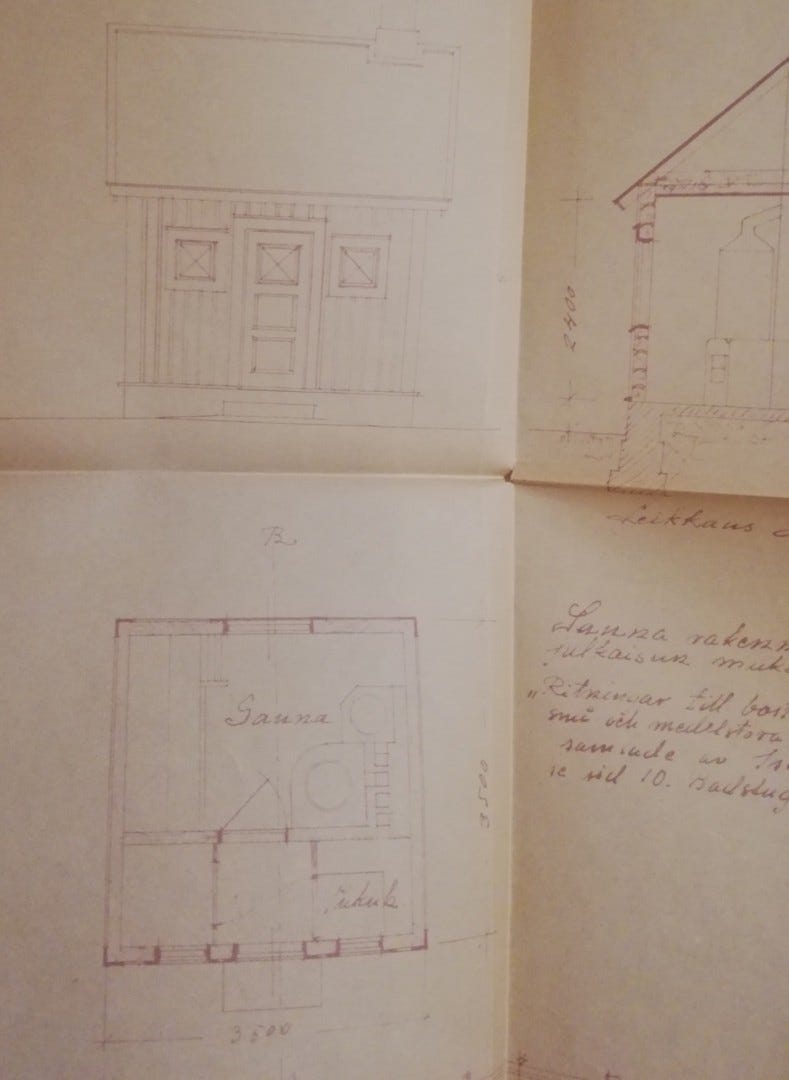 2400
Leikkaus
B
Sauna
3500
3500
Sauna raken
julkaisun muk
„Ritningar till bos
små och medelstora
samlade av
se sid 10. Badstug